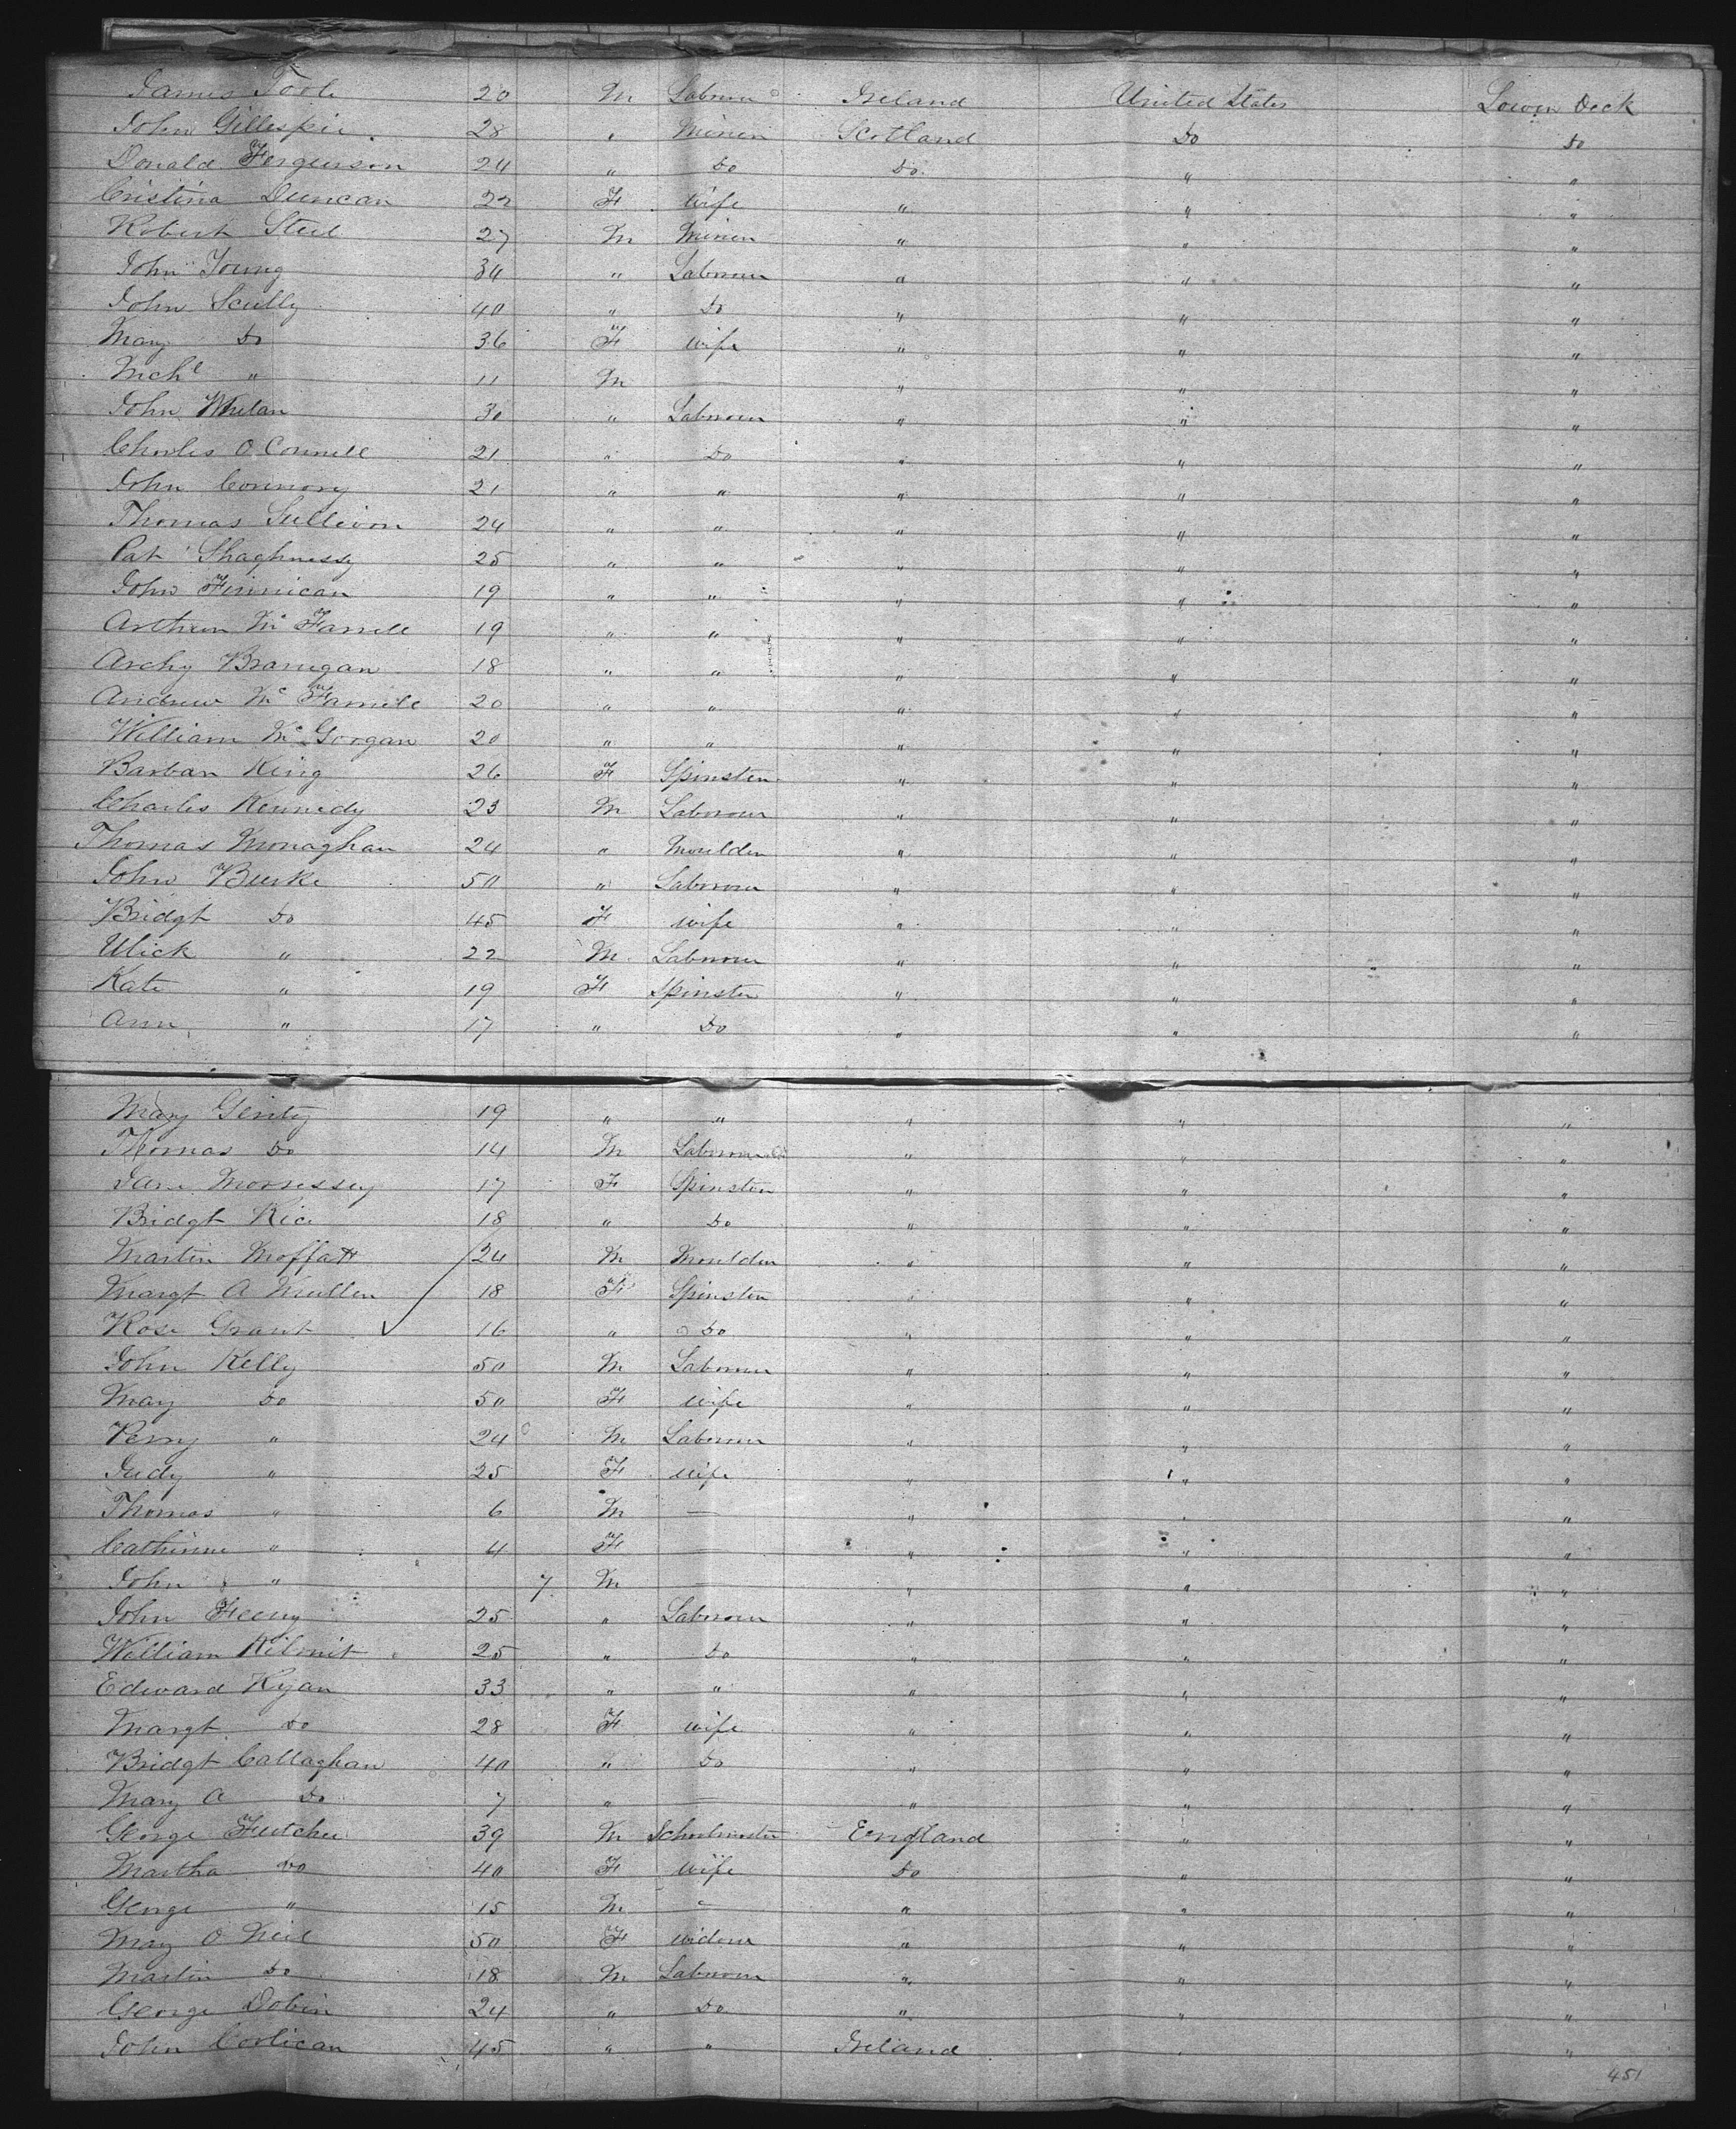 James Toole 20 M Labourer Ireland United States Lower Deck
John Gillespie 28 " Miner Scotland Do Do
Donald Ferguson 24 " Do Do " "
Cristina Duncan 22 F Wife " " "
Robert Steel 27 M Miner " " "
John Young 34 " Labourer " " "
John Scully 40 " Do " " "
Mary Do 36 F Wife " " "
Michl " 11 M — " " "
John Whelan 30 " Labourer " " "
Charles O Connell 21 " Do " " "
John Connory 21 " " " " "
Thomas Sullivan 24 " " " " "
Pat Shaghnessy 25 " " " " "
John Finnican 19 " " " " "
Arthur Mc Farrell 19 " " " " "
Archy Branigan 18 " " " " "
Andrew Mc Farrell 20 " " " " "
William Mc Gorgan 20 " " " " "
Barbar King 26 F Spinster " " "
Charles Kennedy 23 M Labourer " " "
Thomas Monaghan 24 " Moulder " " "
John Burke 50 " Labourer " " "
Bridgt Do 45 F Wife " " "
Ulick " 22 M Labourer " " "
Kate " 19 F Spinster " " "
Ann " 17 " Do " " "
Mary Ginty 19 " " " " "
Thomas Do 14 M Labourer " " "
Jane Morressey 17 F Spinster " " "
Bridgt Rice 18 " Do " " "
Martin Moffatt 24 M Moulder " " "
Margt A Mullen 18 F Spinster " " "
Rose Grant 16 " Do " " "
John Kelly 50 M Labourer " " "
Mary Do 50 F Wife " " "
Perry " 24 M Labourer " " "
Judy " 25 F Wife " " "
Thomas " 6 M — " " "
Catherine " 4 F — " " "
John " 7 M — " " "
John Feeny 25 " Labourer " " "
William Kilmit 25 " Do " " "
Edward Ryan 33 " " " " "
Margt Do 28 F Wife " " "
Bridgt Callaghan 40 " Do " " "
Mary A Do 7 " — " " "
George Fletcher 39 M Schoolmaster England " "
Martha Do 40 F Wife Do " "
George " 15 M " " " "
Mary O Neil 50 F Widow " " "
Martin Do 18 M Labourer " " "
George Dobin 24 " Do " " "
John Corlican 45 " " Ireland " "
451